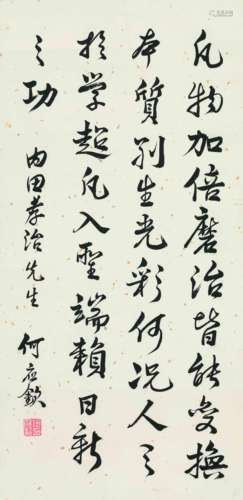 凡物加倍磨治皆能变换
本質別生光彩何況人之
於学超凡入聖端賴日新
之功
内田孝治先生
何应欽